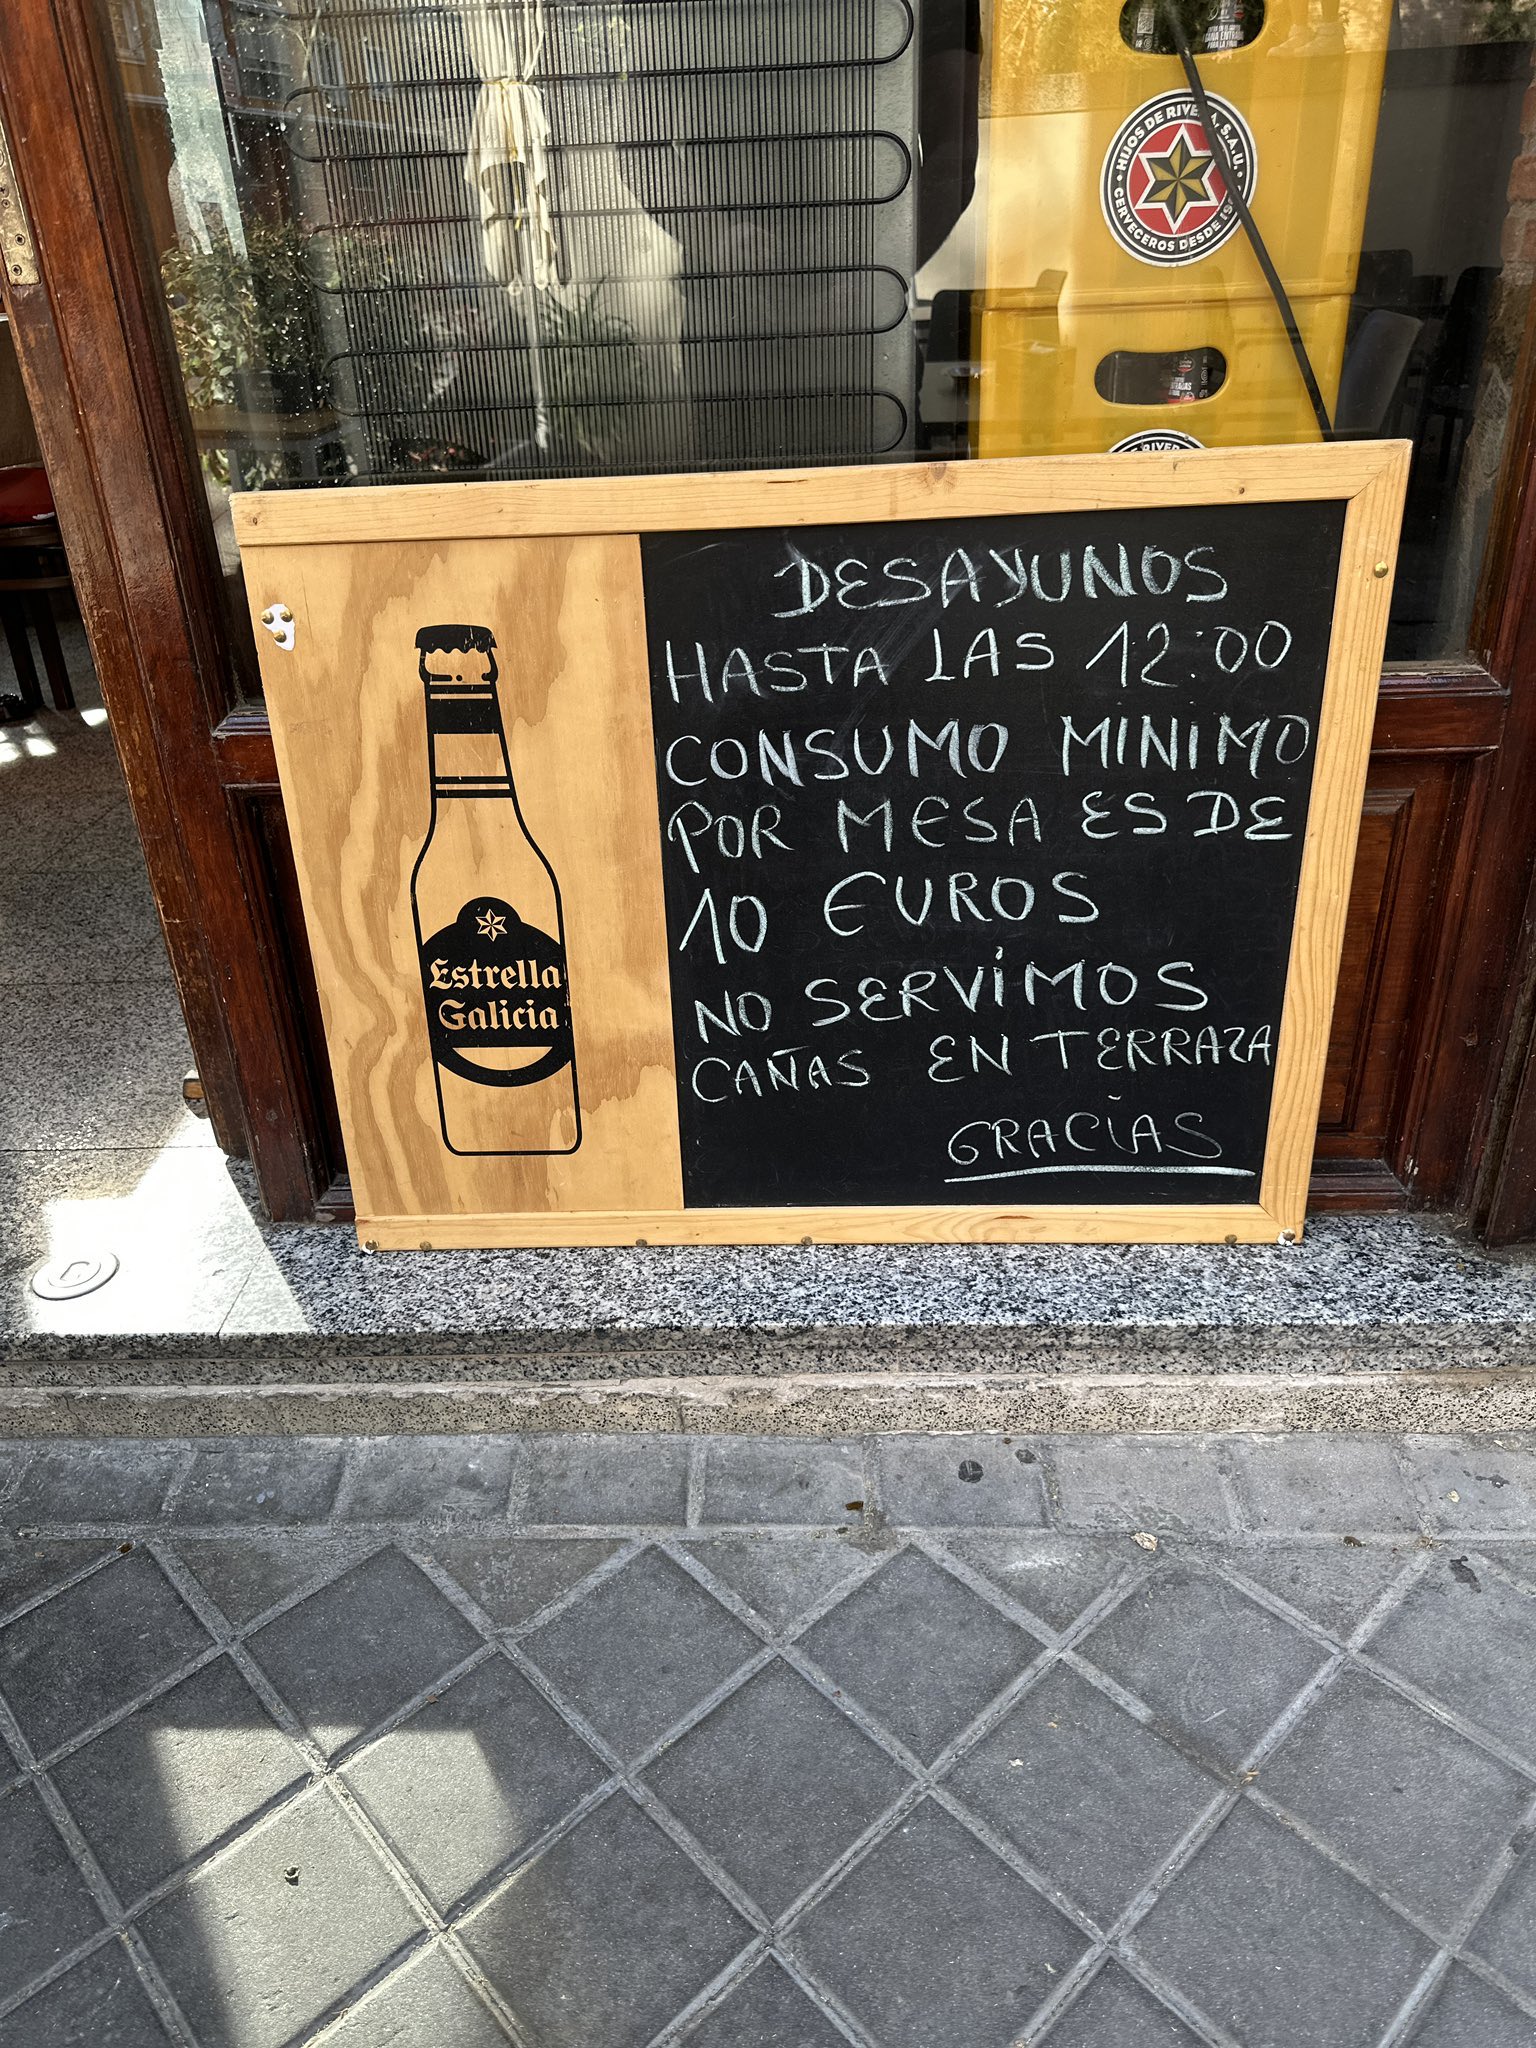 HIJOS DE RIVERA, S.A.U.
CERVECEROS DESDE
DESAYUNOS
HASTA LAS 12:00
CONSUMO MINIMO
POR MESA ES DE
10 EUROS
NO SERVIMOS
CAÑAS EN TERRAZA
GRACIAS
Estrella
Galicia